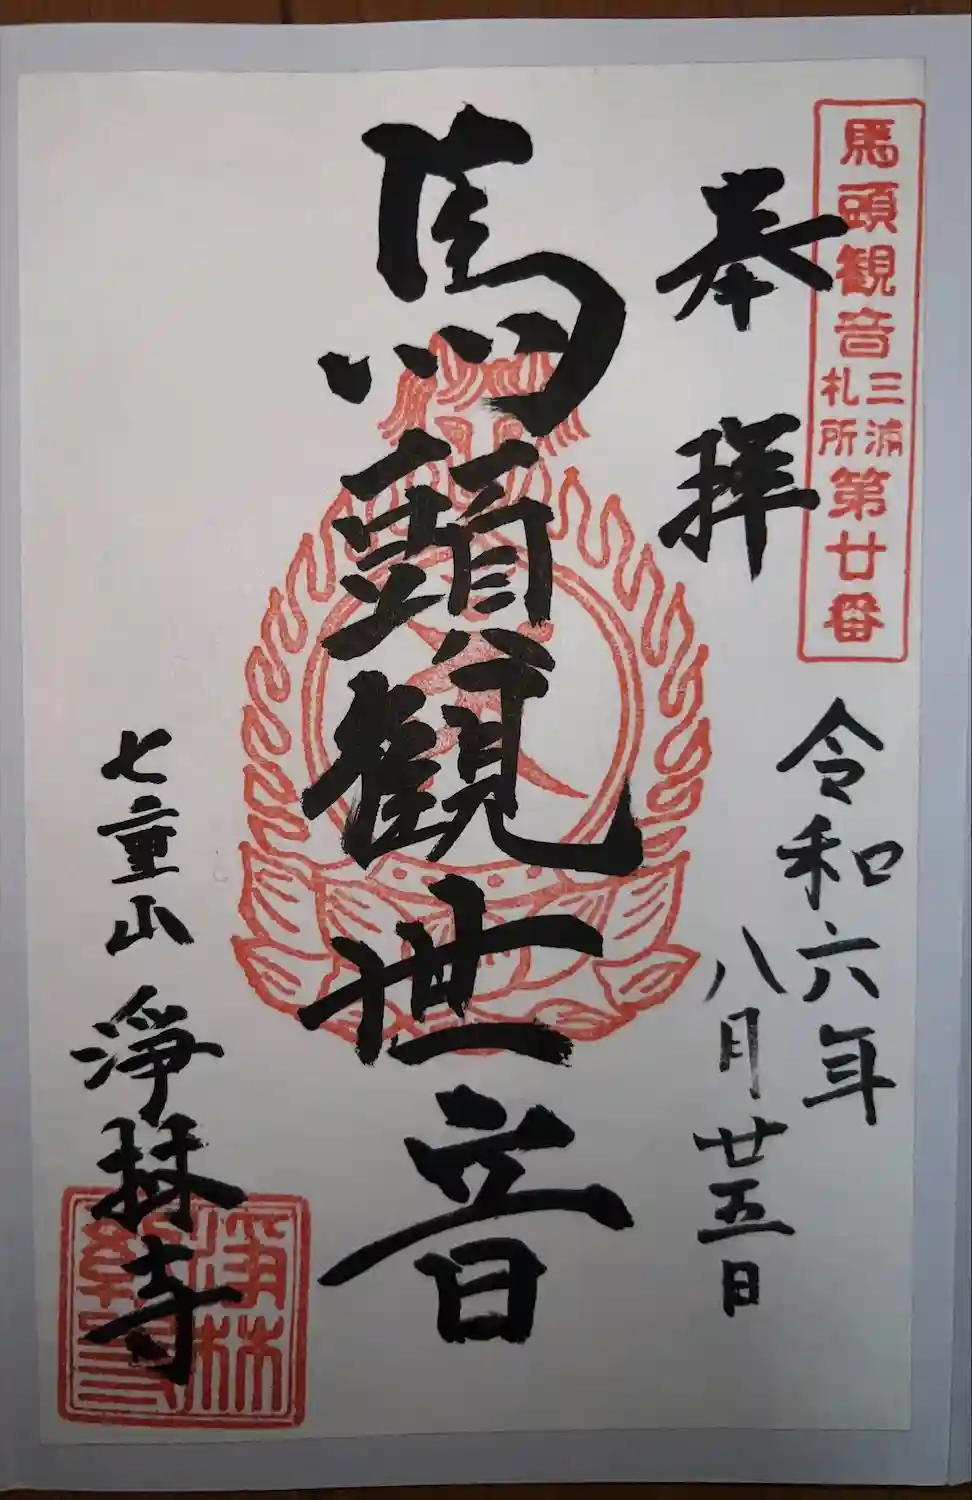 馬頭観音三浦札所第廿番
奉拝
令和六年
八月廿五日
馬頭觀世音
七重山 淨林寺
淨林